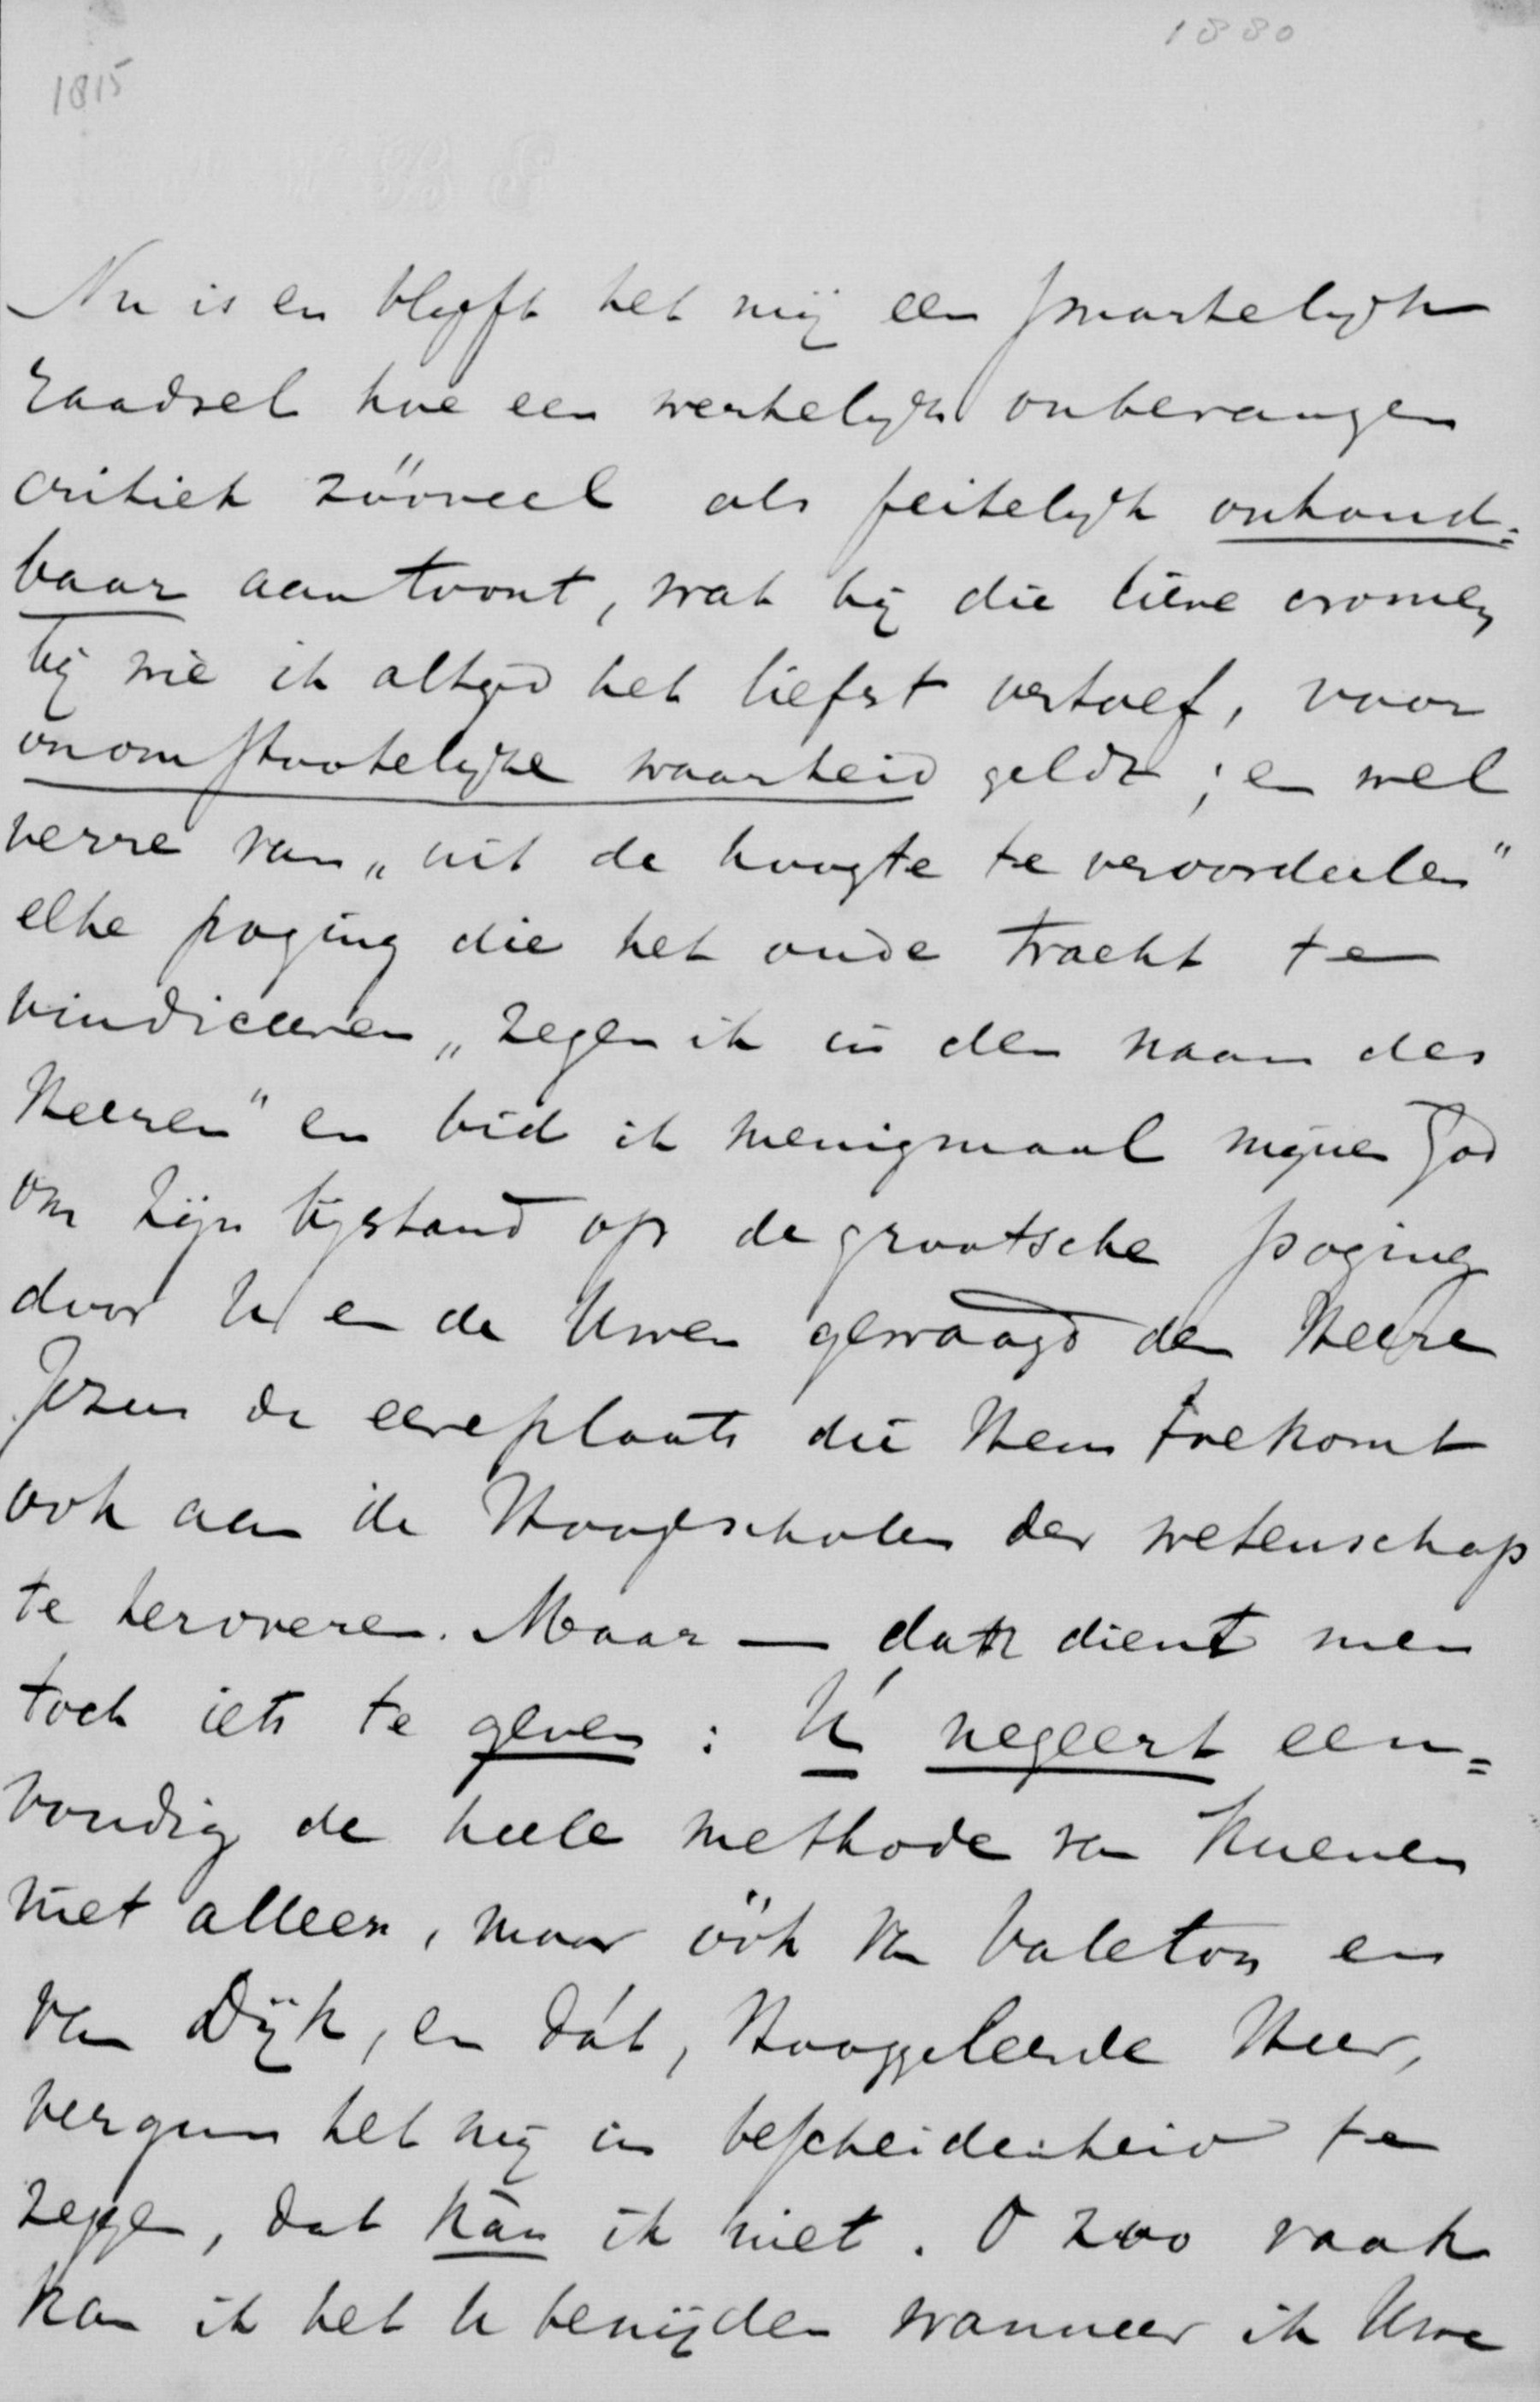 1880
1815
Nu is en blyft het mij een smartelyk
raadsel hoe een werkelyk onbevangen
critiek zöoveel als feitelyk onhoud=
baar aantoont, wat bij die lieve vromen
bij wie ik altyd het liefst vertoef, voor
onomstootelyke waarheid geldt; en wel
verre van „uit de hoogte te veroordeelen"
elke poging die het oude tracht te
vindiceeren „zegen ik in den naam des
Heeren" en bid ik menigmaal mijnen God
om Zijn bijstand op de grootsche poging
door U en de Uwen gewaagd den Heere
Jezus de eereplaats die Hem toekomt
ook aan de Hoogescholen der wetenschap
te heroveren. Maar — dan dient men
toch iets te geven: Ú negeert een=
voudig de heele methode van Kuenen
niet alleen, maar öök van Valeton en
van Dijk, en dát, Hooggeleerde Heer,
vergun het mij in bescheidenheid te
zeggen, dat kàn ik niet. O zoo vaak
kan ik het U benijden wanneer ik Uwe